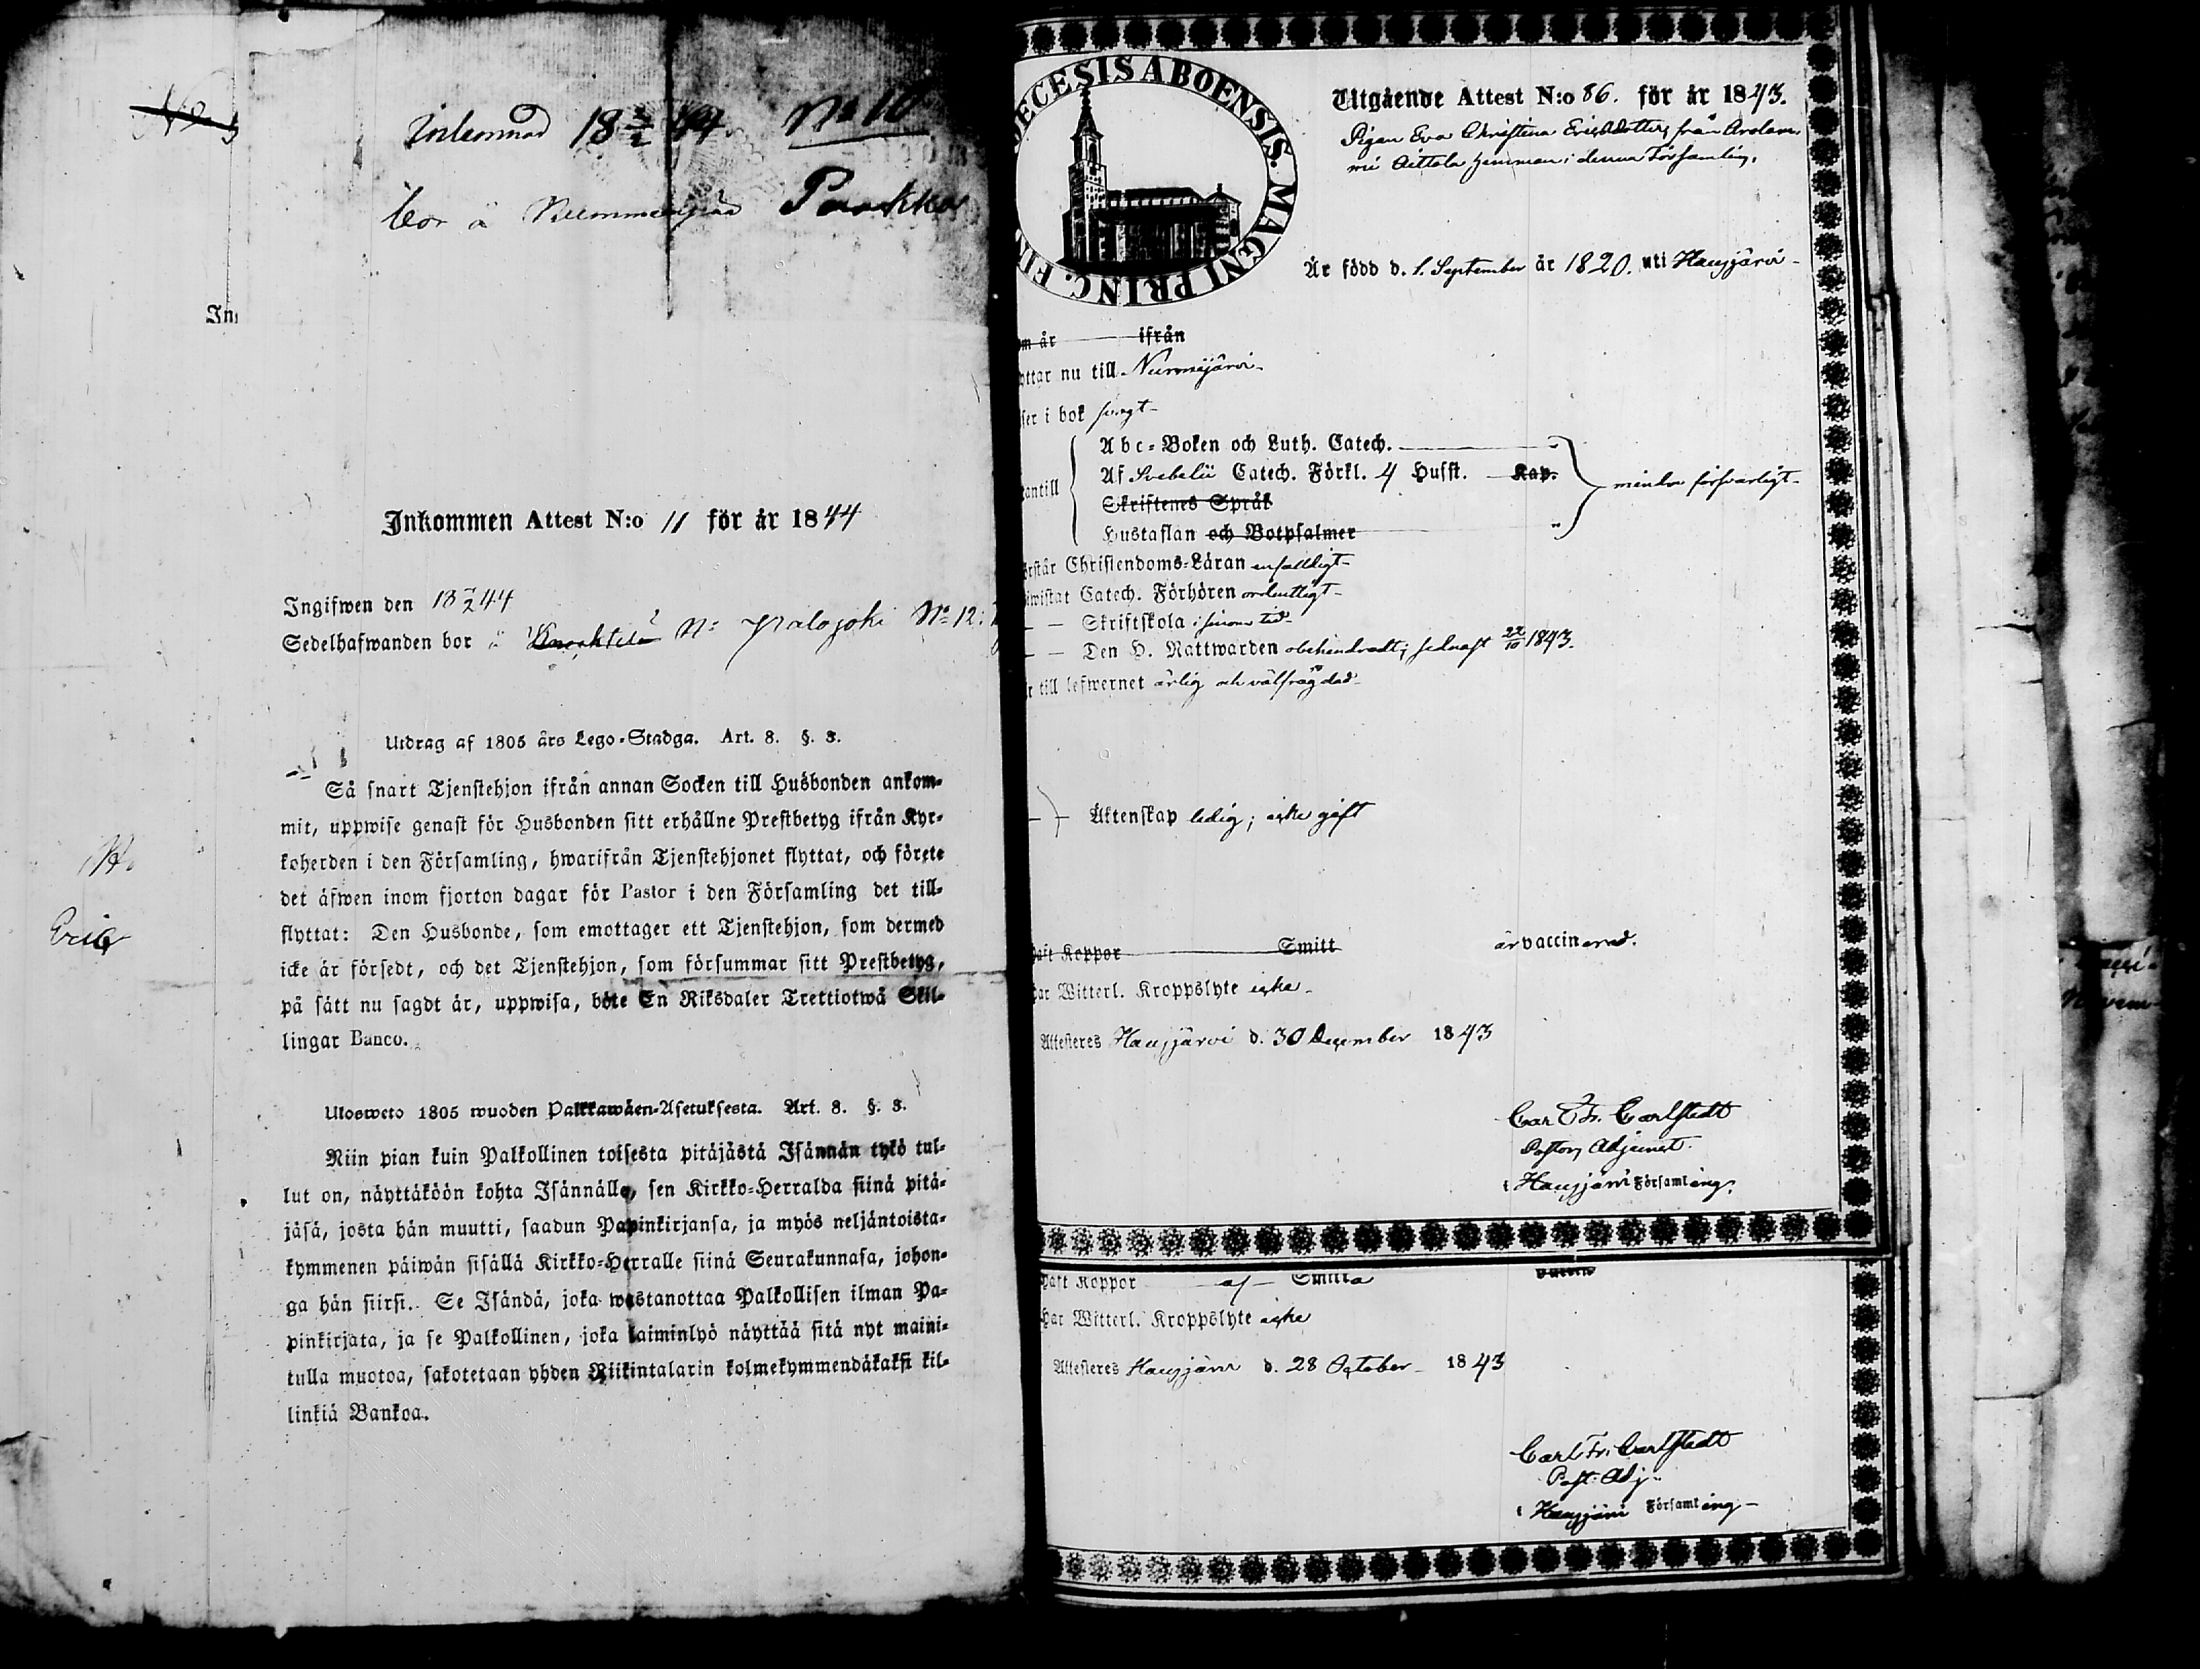 Inlemnad 18 2/2 44. No 10
bor å Nummenpää Parkkas
In
Inkommen Attest N:o 11 för år 1844
Ingifwen den 18 7/2 44
Sedelhafwanden bor å No Palojoki No 12:
Eric
Utdrag af 1805 års Lego-Stadga. Art. 8. §. 3.
Så snart Tjenstehjon ifrån annan Socken till Husbonden ankom-
mit, uppwise genast för Husbonden sitt erhållne Prestbetyg ifrån Kyr-
koherden i den Församling, hwarifrån Tjenstehjonet flyttat, och förete
det äfwen inom fjorton dagar för Pastor i den Församling det till-
flyttat: Den Husbonde, som emottager ett Tjenstehjon, som dermed
icke är försedt, och det Tjenstehjon, som försummar sitt Prestbetyg,
på sätt nu sagdt är, uppwisa, böte En Riksdaler Trettiotwå Skil-
lingar Banco.
Ulosweto 1805 wuoden Palkkawäen-Asetuksesta. Art. 8. §. 3.
Niin pian kuin Palkollinen toisesta pitäjästä Isännän tykö tul-
lut on, näyttäköön kohta Isännälle, sen Kirkko-Herralda siinä pitä-
jäsä, josta hän muutti, saadun Papinkirjansa, ja myös neljäntoista-
kymmenen päiwän sisällä Kirkko-Herralle siinä Seurakunnasa, johon-
ga hän siirsi. Se Isändä, joka wastanottaa Palkollisen ilman Pa-
pinkirjata, ja se Palkollinen, joka laiminlyö näyttää sitä nyt maini-
tulla muotoa, sakotetaan yhden Riikintalarin kolmekymmendäkaksi kil-
linkiä Bankoa.
DECESIS ABOENSIS. MAGNI PRINC. FIN
Utgående Attest N:o 86. för år 1843.
Pigan Eva Christina Ericsdotter, från Arolam
mi Aittola hemman i denna Församling,
Är född d. 1. September år 1820. uti Hausjärvi
om år ifrån
yttar nu till Nurmijärvi
ser i bok svagt
Abc-Boken och Luth. Catech. "
antill Af Svebelii Catech. Förkl. 4 Husst. Kap. mindre försvarligt
Skriftenes Språk
Hustaflan och Botpsalmer "
rstår Christendoms-Läran enfaldigt
iwistat Catech. Förhören ordentligt
— — Skriftskola i sinom tid
— — Den H. Nattwarden obehindradt; sednast 22/10 1843.
r till lefwernet ärlig och välfrägdad
Äktenskap ledig; icke gift
haft Koppor Smitt är vaccinerad.
har Witterl. Kroppslyte icke
Attesteres Hausjärvi d. 30 December 1843
Carl Fr. Carlstedt
Pastors Adjunct
i Hausjärvi Församling.
haft Koppor af Smitta
har Witterl. Kroppslyte icke
Attesteres Hausjärvi d. 28 October 1843
Carl Fr. Carlstedt
Past. Adj.
i Hausjärvi Församling